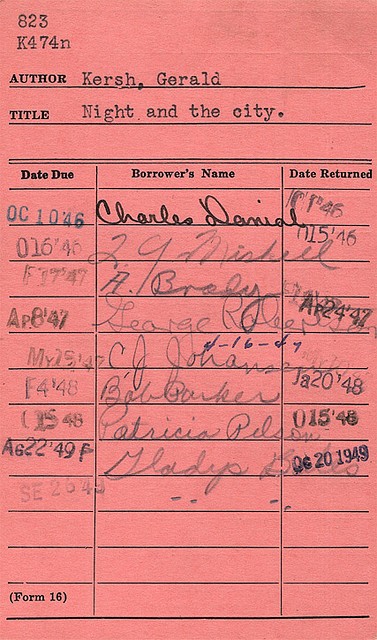 823
K474n
AUTHOR Kersh, Gerald
TITLE Night and the city.
Date Due Borrower's Name Date Returned
OC 10 '46 Charles Danial
O16 '46 015 '46
'47 A. Brady
Ap8 '47 George Ap24 '47
My15 '47 C. J. 4-16-47
F4 '48 Bob Parker Ja20 '48
15 48 Patricia 015 '48
AG22 '49 F Gladys OC 20 1949
SE 26 49 " " "
(Form 16)